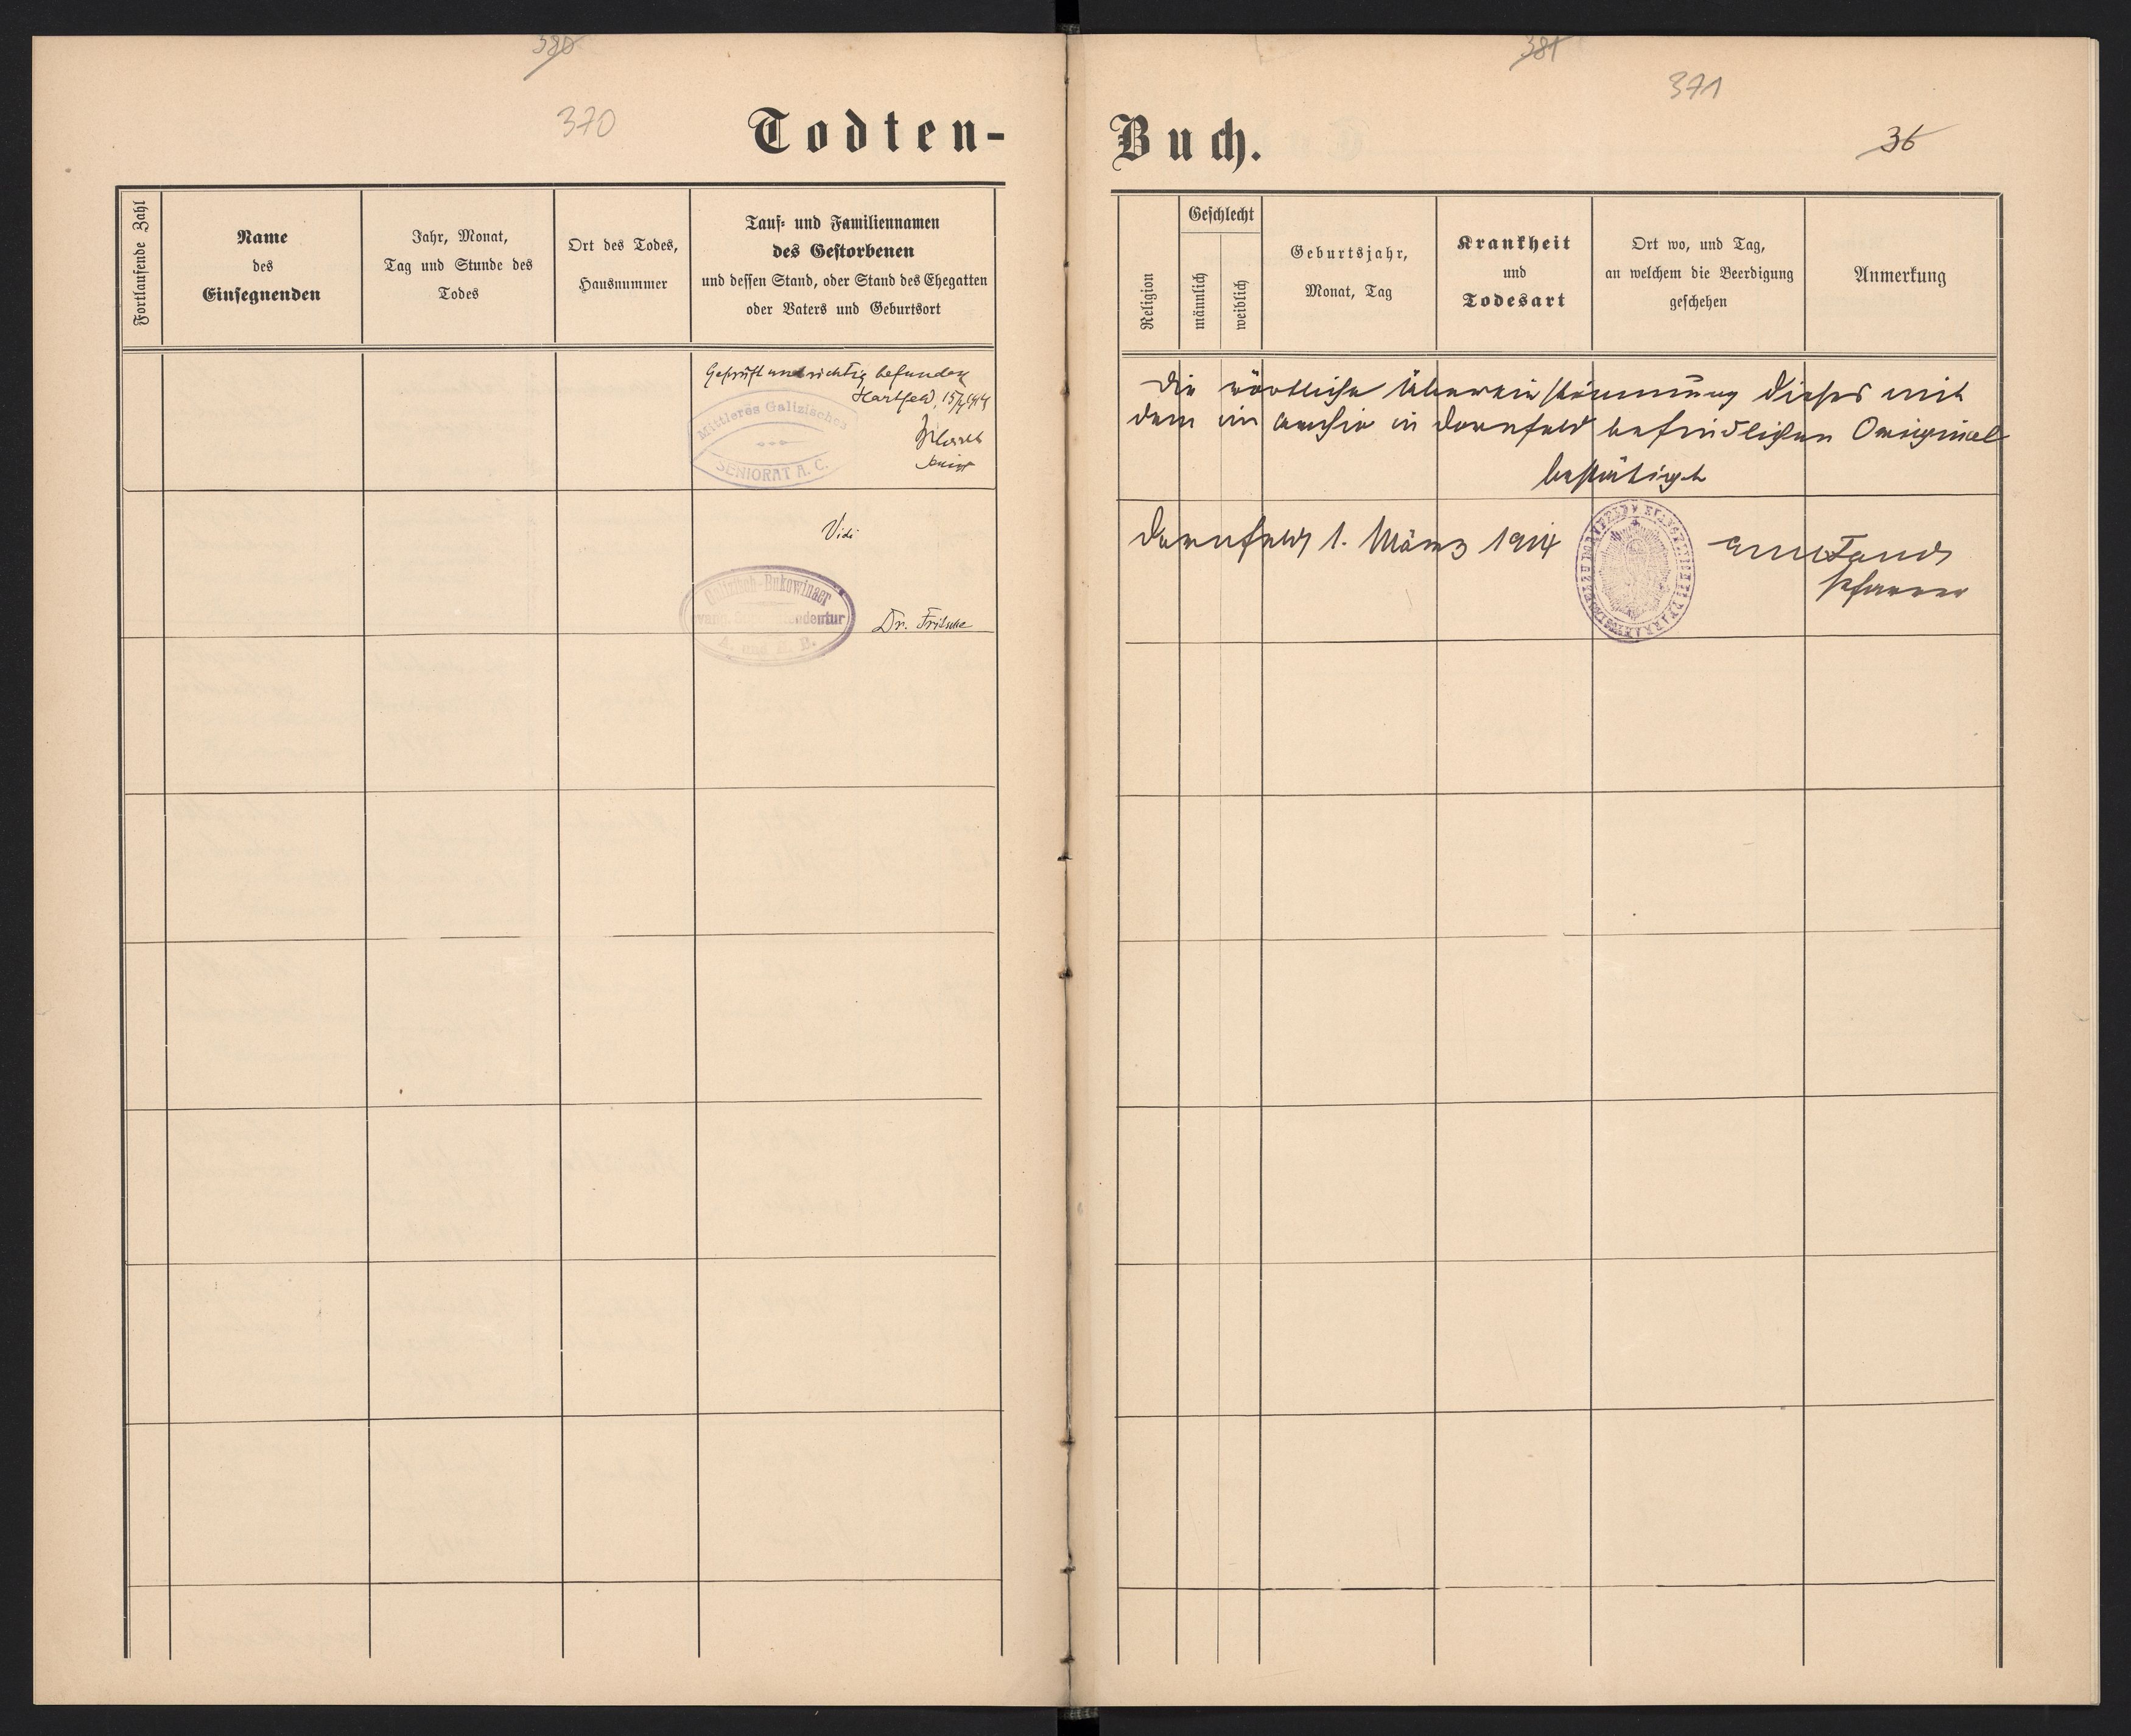 380
370
Todten-
Fortlaufende Zahl
Name
des
Einsegnenden
Jahr, Monat,
Tag und Stunde des
Todes
Ort des Todes,
Hausnummer
Tauf- und Familiennamen
des Gestorbenen
und dessen Stand, oder Stand des Ehegatten
oder Vaters und Geburtsort
Geprüft und richtig befunden
Hartfeld, 15/
Mittleres Galizisches
SENIORAT A. C.
Senior
Vidi
Galizisch-Bukowinaer
evang. Superintendentur
A. und H. B.
Dr. Fritsche
381
371
Buch.
36
Religion
Geschlecht
männlich
weiblich
Geburtsjahr,
Monat, Tag
Krankheit
und
Todesart
Ort wo, und Tag,
an welchem die Beerdigung
geschehen
Anmerkung
Die wörtliche Übereinstimmung dieses mit
dem im Archiv in Dornfeld befindlichen Original
bestätigt
Dornfeld 1. März 1914
Pfarrer